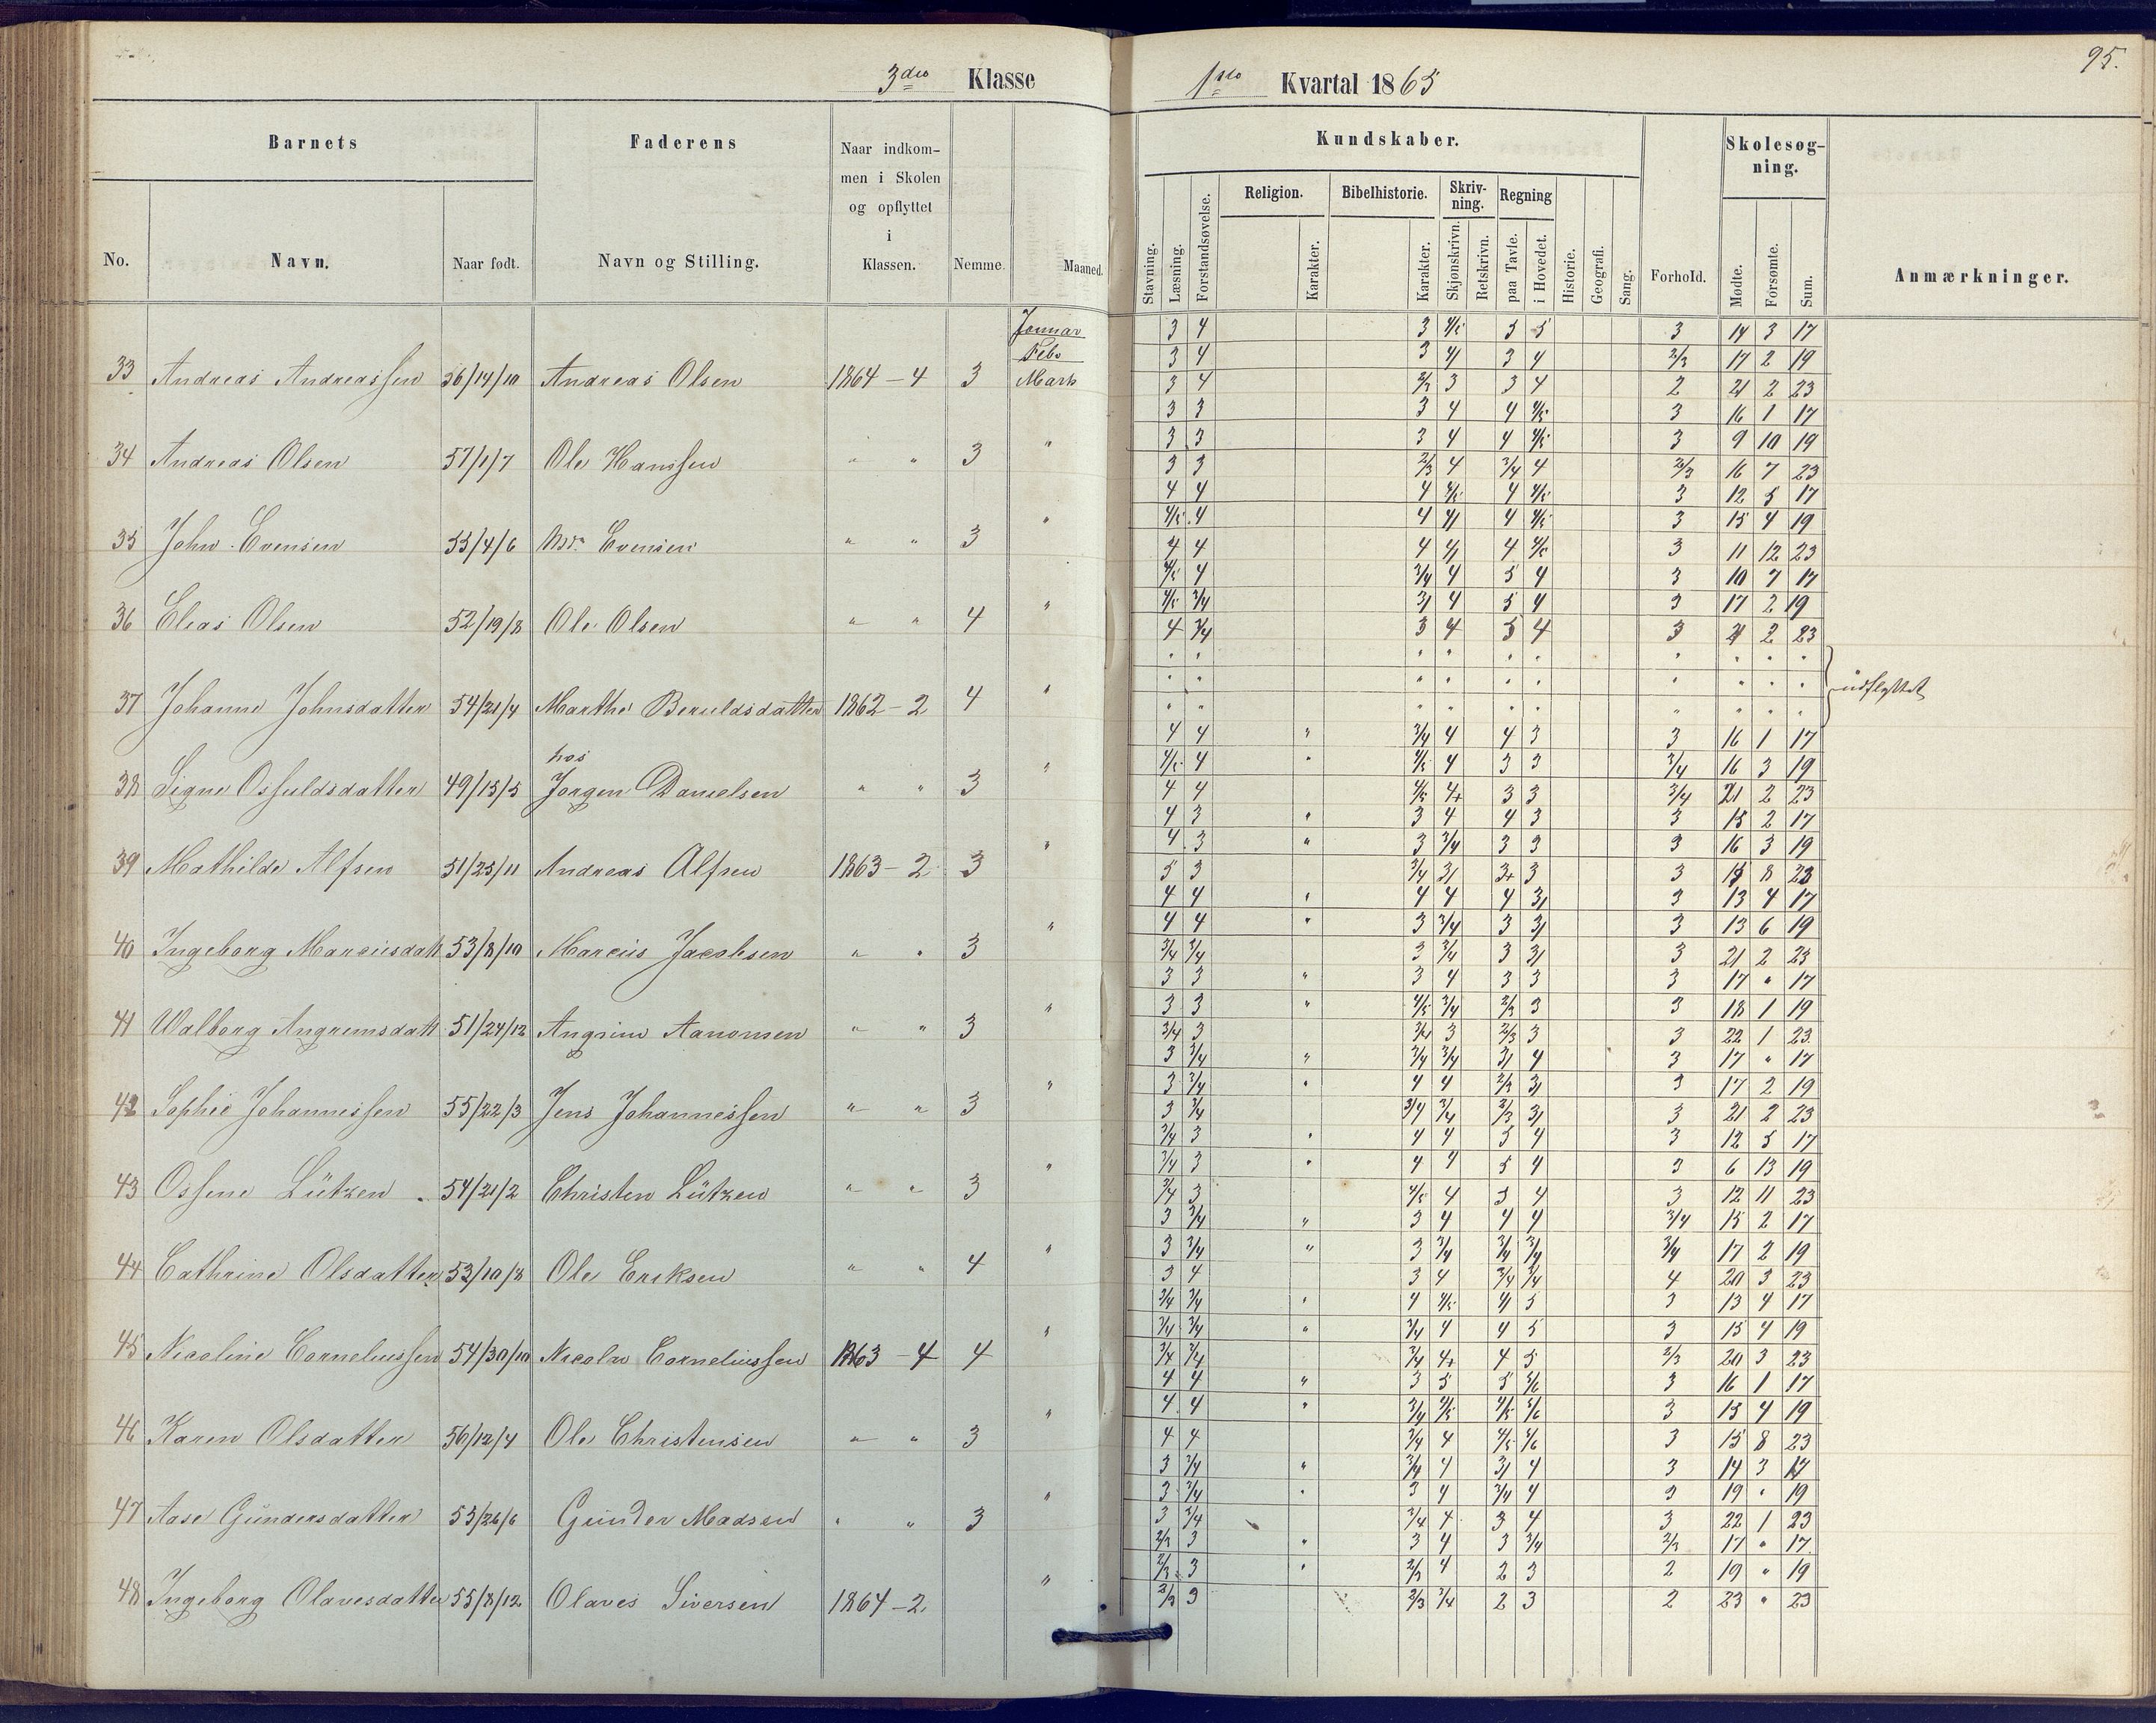 3die Klasse
1ste Kvartal 1865
95.
Barnets
Faderens
Naar indkommen i Skolen og opflyttet i Klassen.
Nemme.
Maaned.
No.
Navn.
Naar født.
Navn og Stilling.
Kundskaber.
Stavning.
Læsning.
Forstandsøvelse.
Religion.
Karakter.
Bibelhistorie.
Karakter.
Skrivning.
Skjønskrivn.
Retskrivn.
Regning
paa Tavle.
i Hovedet.
Historie.
Geografi.
Sang.
Forhold.
Skolesøgning.
Mødte.
Forsømte.
Sum.
Anmærkninger.
Januar 3 4 3 4/5 5 5 3 14 3 17
Feb. 3 4 3 4/ 3 4 2/3 17 2 19
33 Andreas Andreassen 56/14/10 Andreas Olsen 1864 - 4 3 Marts 3 4 2/3 3 3 4 2 21 2 23
3 3 3 4 4 4/5 3 16 1 17
3 3 3 4 4 4/5 3 9 10 19
34 Andreas Olsen 57/1/7 Ole Hanssen " " 3 " 3 3 2/3 4 3/4 4 2/3 16 7 23
4 4 4 4/5 4 4/5 3 12 5 17
4/5 4 4 4/ 4 4/5 3 15 4 19
35 John Evensen 55/4/6 Evensen " " 3 " 4 4 4 4/ 4 4/5 3 11 12 23
4/5 4 3/4 4 5 4 3 10 7 17
4/5 3/4 3/ 4 5 4 3 17 2 19
36 Elias Olsen 52/19/8 Ole Olsen " " 4 " 4 3/4 3 4 5 4 3 21 2 23
37 Johanne Johnsdatter 54/21/4 Marthe Beruldsdatter 1862 - 2 4 " udflyttet
4 4 " 3/4 4 4 3 3 16 1 17
4/5 4 " 4/5 4 3 3 3/4 16 3 19
38 Signe Osfuldsdatter 49/15/5 hos Jørgen Danielsen " " 3 " 4 4 4/5 4+ 3 3 3/4 21 2 23
4 3 " 3 4 4 3 3 15 2 17
4 3 " 3 3/4 3 3 3 16 3 19
39 Mathilde Alfsen 51/25/11 Andreas Alfsen 1863 - 2 3 " 5 3 3/4 3/ 3+ 3 3 15 8 23
4 4 " 4 4 4 3/ 3 13 4 17
4 4 " 3 3/4 3 3/ 3 13 6 19
40 Ingeborg Marciusdatt 53/8/10 Marcius Jacobsen " " 3 " 3/4 3/4 3 3/4 3 3/ 3 21 2 23
3 3 " 3 4 3 3 3 17 " 17
3 3 " 4/5 3/4 2/3 3 3 18 1 19
41 Walborg Angrimsdatt 51/24/12 Angrim Aanonsen " " 3 " 3/4 3 3/4 3 2/3 3 3 22 1 23
3 3/4 " 3/4 3/4 3/ 4 3 17 " 17
3 3/4 " 4 4 2/3 3/ 3 17 2 19
42 Sophie Johannessen 55/22/3 Jens Johannessen " " 3 " 3 3/4 3/4 3/4 2/3 3/ 3 21 2 23
3/4 3 " 4 4 5 4 3 12 5 17
3/4 3 " 4 4 5 4 3 6 13 19
43 Ossine Lützen 54/21/2 Christen Lützen " " 3 " 3/4 3 4/5 4 5 4 3 12 11 23
3 3/4 " 3 4 4 4 3/4 15 2 17
3 3/4 " 3 3/4 3/4 3/4 3/4 17 2 19
44 Cathrine Olsdatter 53/10/8 Ole Eriksen " " 4 " 3 4 3 4 3/4 3/4 4 20 3 23
3/4 3/4 " 4 4/5 4/ 5 3 13 4 17
3/4 3/4 " 3/4 4 4 5 3 15 4 19
45 Nicoline Corneliussen 54/30/10 Nicolai Corneliussen 1863 - 4 4 " 3/4 3/4 3/4 4+ 4 5 2/3 20 3 23
4 4 " 3 5 5 5/6 3 16 1 17
4 4 " 3/4 4/5 4/5 5/6 3 15 4 19
46 Karen Olsdatter 56/12/4 Ole Christensen " " 3 " 4 4 3/4 4 4/5 5/6 3 15 8 23
3 3/4 " 3/4 4 3/ 4 3 14 3 17
3 3/4 " 3 4 3/4 4 3 19 " 19
47 Aase Gundersdatter 53/26/6 Gunder Madsen " " 3 " 3 3/4 3/4 4 3 4 3 22 1 23
2/3 3 " 3 4 3 3/4 2/3 17 " 17
2/3 3 " 2/3 4 2 3 2 19 " 19
48 Ingeborg Olavesdatter 55/8/12 Olaves Siversen 1864 - 2 " 2/3 3 2/3 3/4 2 3 2 23 " 23